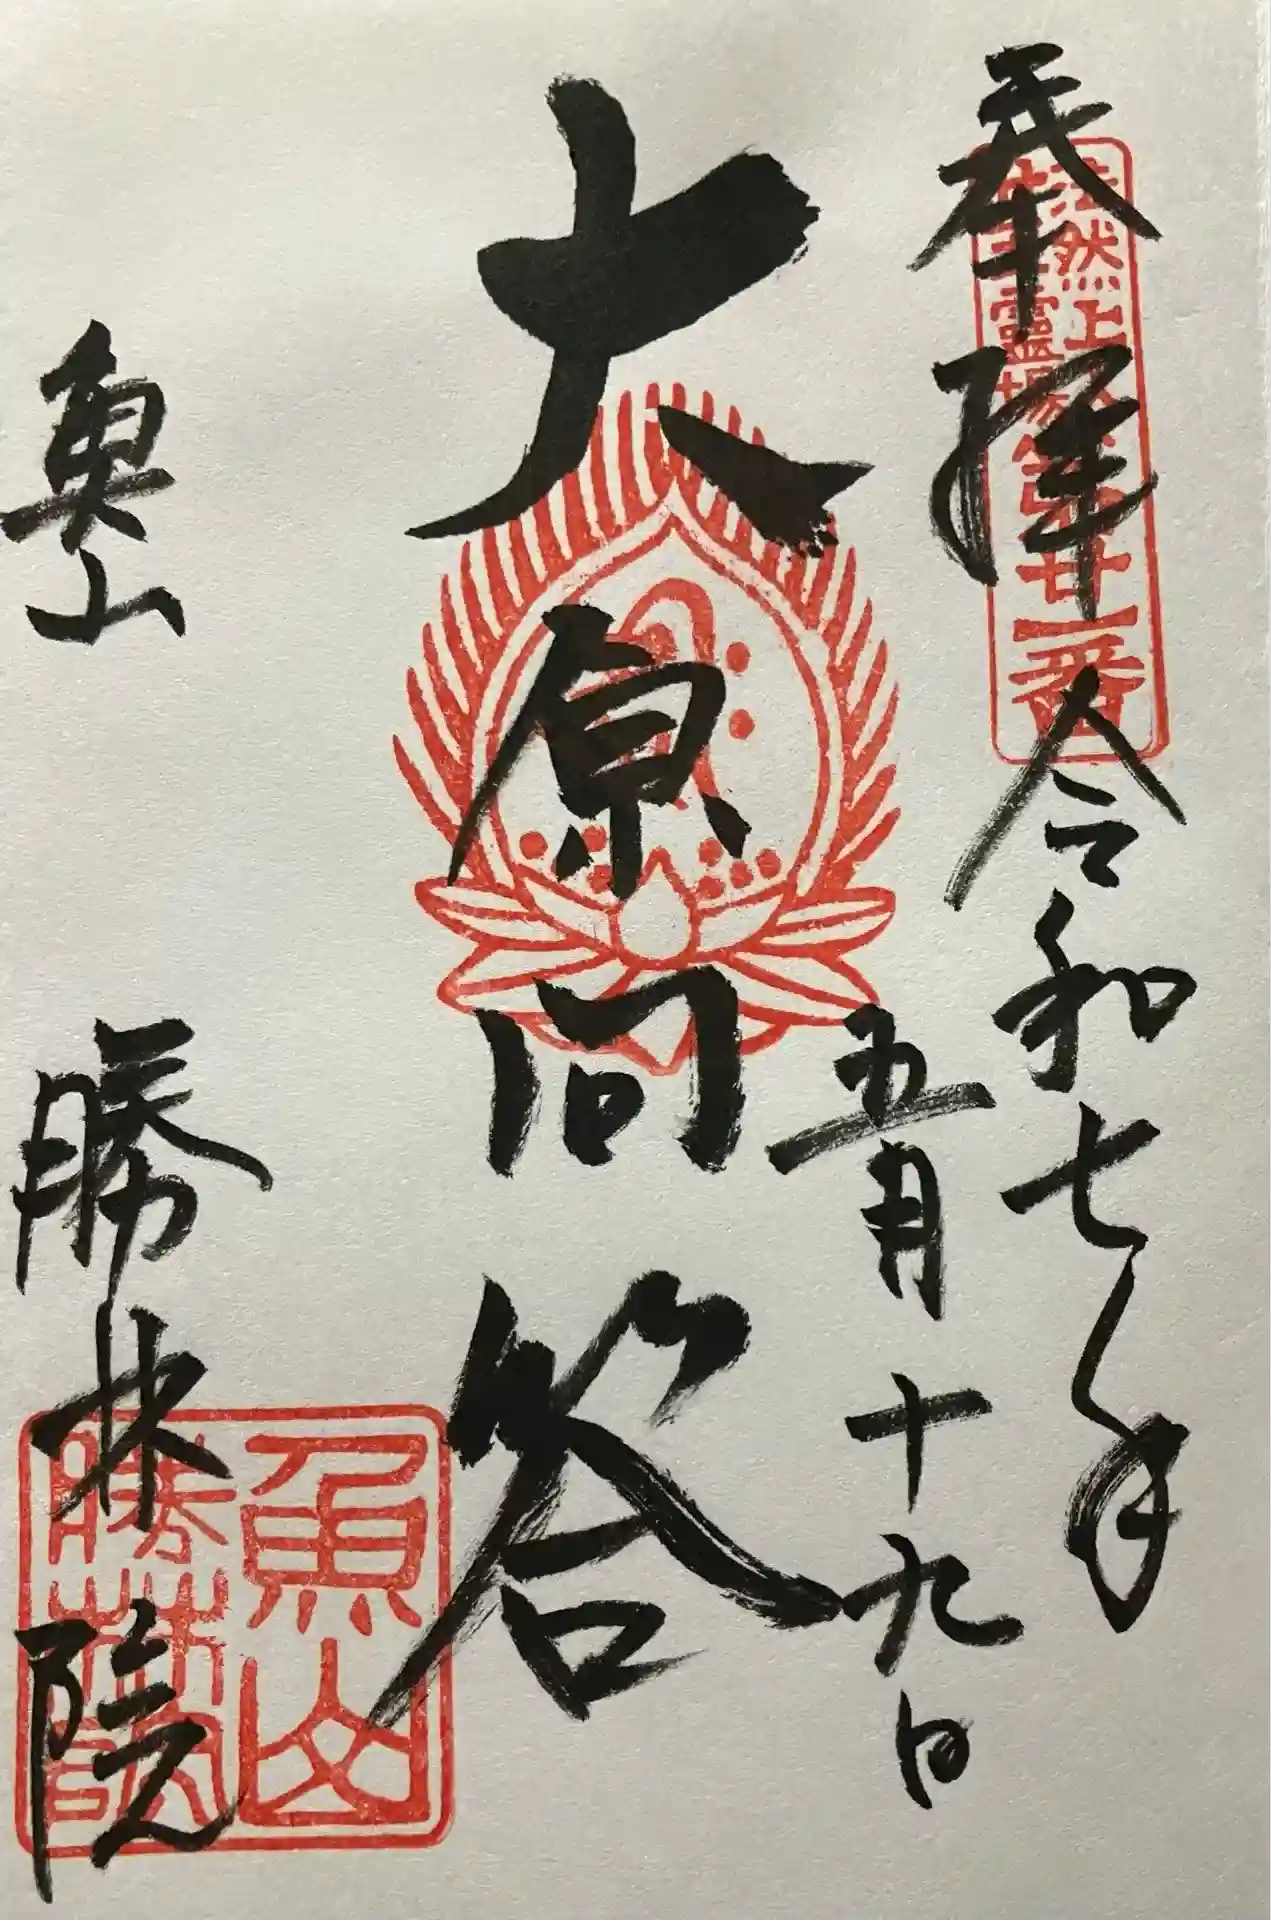 奉拝
令和七年
五月十九日
大原問答
魚山
勝林院
然上
霊場
第廿一番
魚山
勝林院